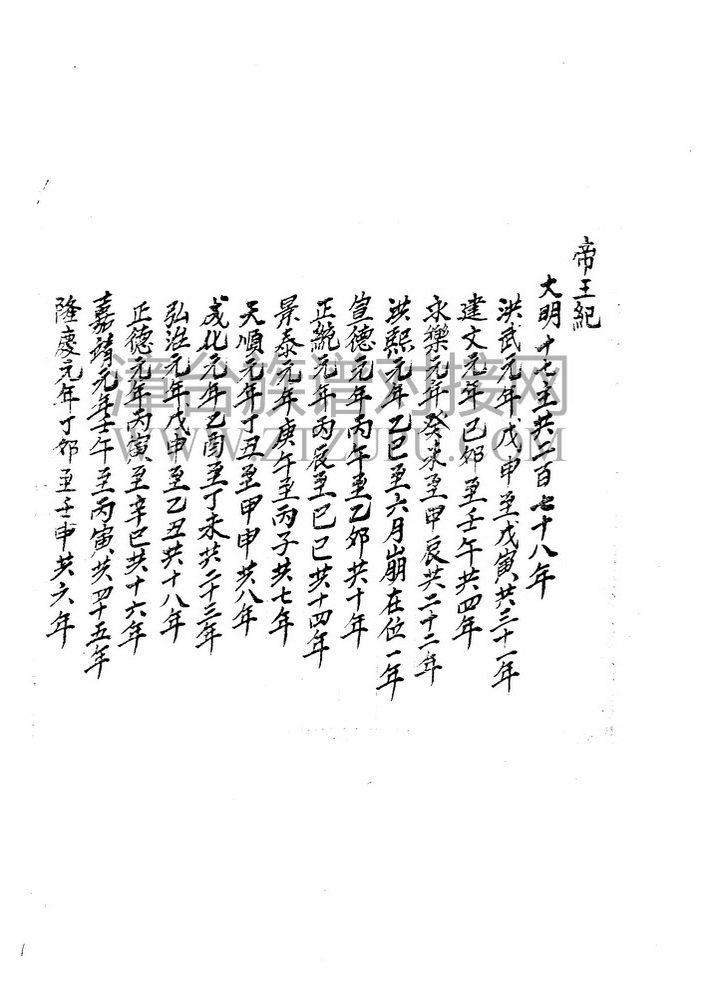 帝王紀
大明十七主共二百七十八年
洪武元年戊申至戊寅共三十一年
建文元年己卯至壬午共四年
永樂元年癸未至甲辰共二十二年
洪熙元年乙巳至六月崩在位一年
宣德元年丙午至乙卯共十年
正統元年丙辰至己巳共十四年
景泰元年庚午至丙子共七年
天順元年丁丑至甲申共八年
成化元年乙酉至丁未共二十三年
弘治元年戊申至乙丑共十八年
正德元年丙寅至辛巳共十六年
嘉靖元年壬午至丙寅共四十五年
隆慶元年丁卯至壬申共六年
漳台族谱对接网
WWW.ZTZUPU.COM